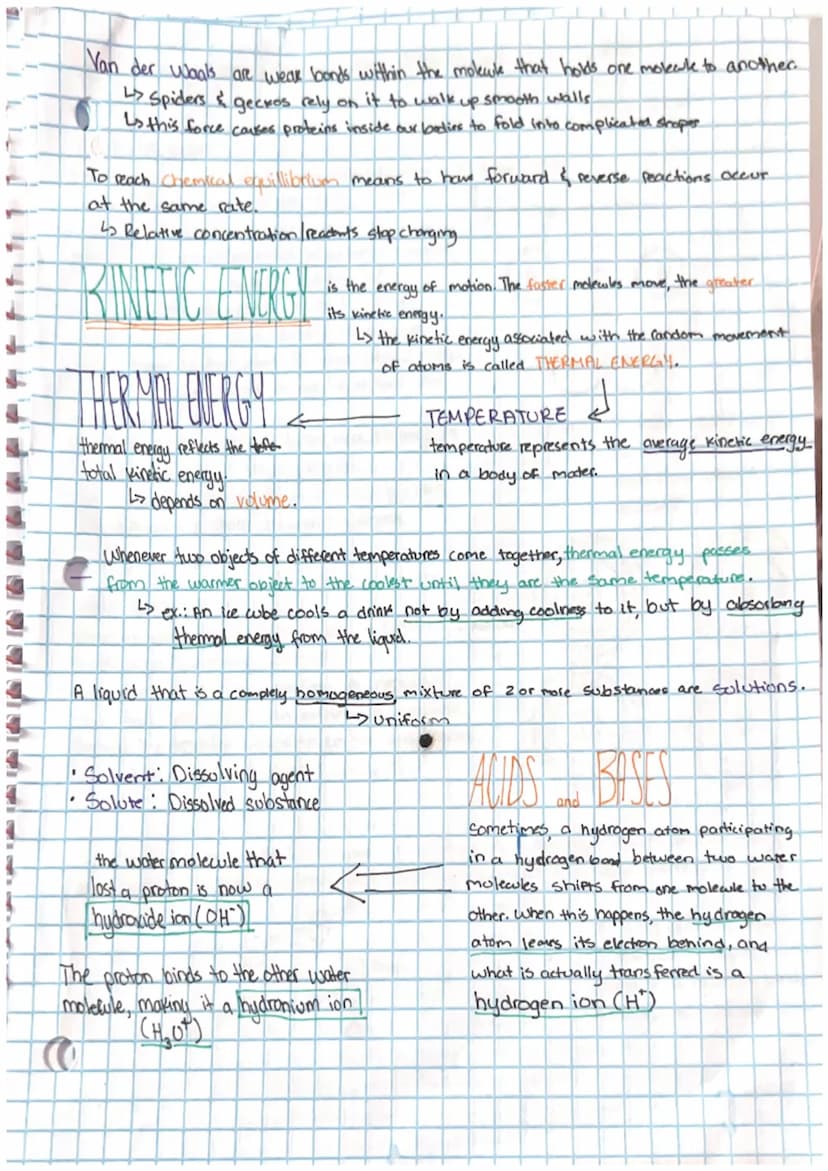 Van der Waals are weak bonds within the molecule that holds one molecule to another.
↳ Spiders & geckos rely on it to walk up smooth walls
↳ this force causes proteins inside our bodies to fold into complicated shapes
To reach chemical equillibrium means to have forward & reverse reactions occur
at the same rate.
↳ Relative concentration/reactants stop changing
KINETIC ENERGY is the energy of motion. The faster molecules move, the greater
its kinetic energy.
↳ the kinetic energy associated with the random movement
of atoms is called THERMAL ENERGY.
THERMAL ENERGY
thermal energy reflects the
total kinetic energy.
↳ depends on volume.
TEMPERATURE
temperature represents the average kinetic energy
in a body of mater.
Whenever two objects of different temperatures come together, thermal energy passes
from the warmer object to the coolest until they are the same temperature.
↳ ex.: An ice cube cools a drink not by adding coolness to it, but by absorbang
thermal energy from the liquid.
A liquid that is a complely homogeneous mixture of 2 or more substances are solutions.
↳ uniform
• Solvent: Dissolving agent
• Solute: Dissolved substance
ACIDS and BASES
Sometimes, a hydrogen atom participating
in a hydrogen bond between two water
molecules shifts from one molecule to the
other. When this happens, the hydrogen
atom leaves its electron behind, and
what is actually transferred is a
hydrogen ion (H⁺)
the water molecule that
lost a proton is now a
hydroxide ion (OH⁻)
The proton binds to the other water
molecule, making it a hydronium ion
(H₃O⁺)